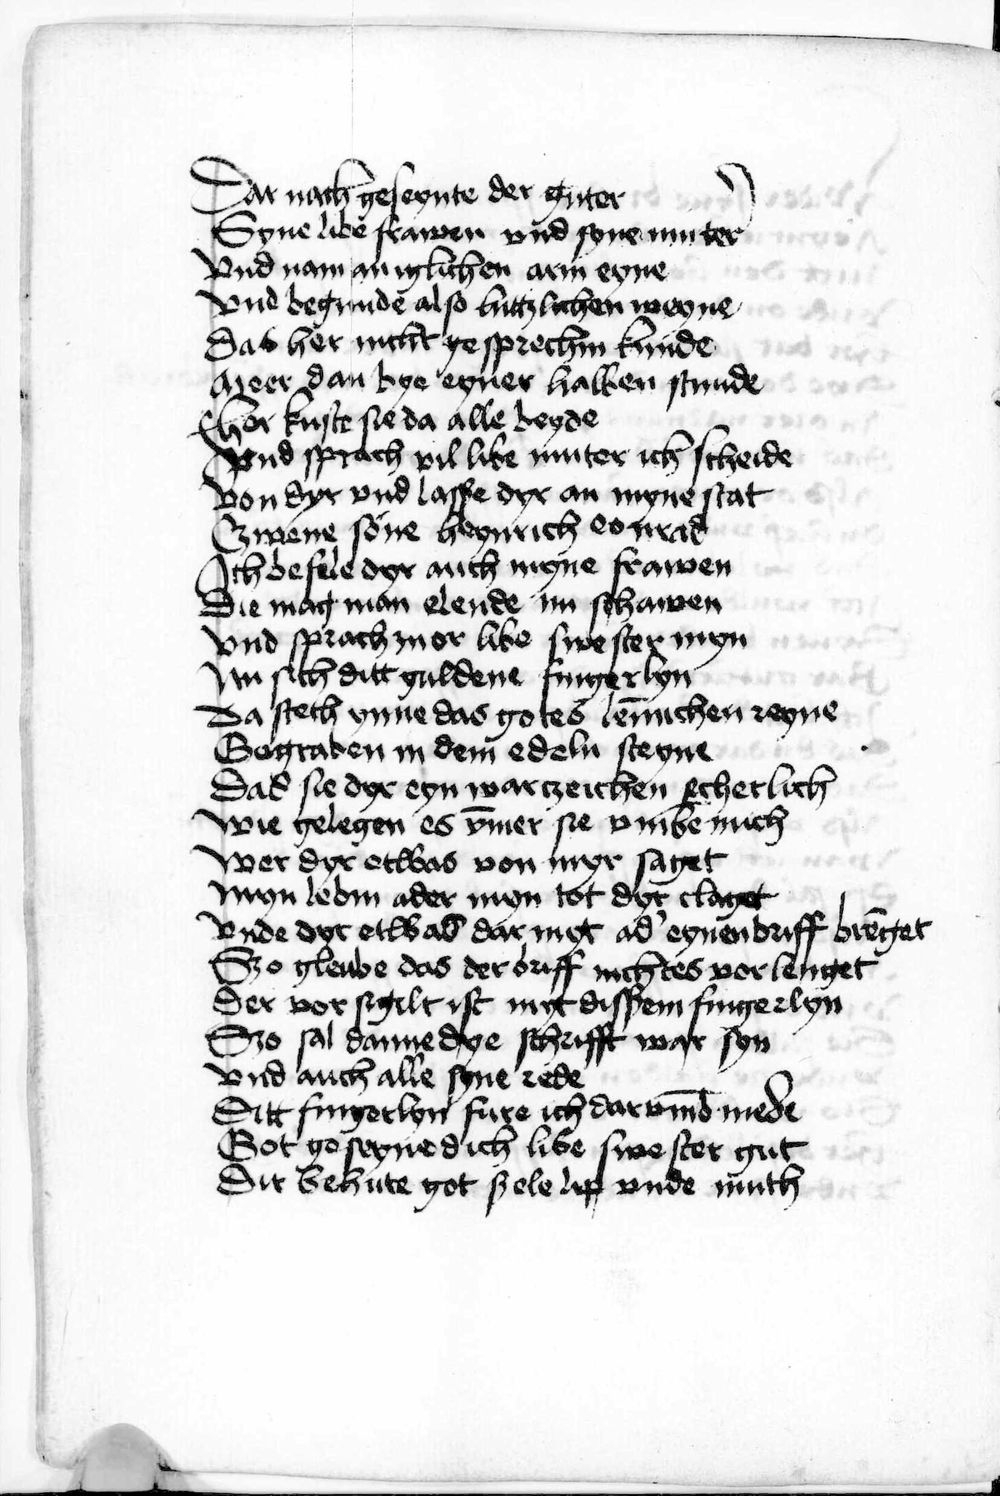 Dar nach geseynte der guter
Syne libe frawen vnd syne muter
Vnd nam an iglichen arm eyne
Vnd begunde also hittzlichen weyne
Das her nicht gesprechin kunde
Meer dan bye eyner halben stunde
Eher kuste sie da alle beyde
Vnd sprach vil libe muter ich scheide
Von dyr vnd lasse dyr an myne stat
Czwene söne heynrich conrad
Ich befele dyr auch myne frawen
Die mag man elende nu schawen
Vnd sprach zu or libe swester myn
Nu sich ditt guldene fingerlyn
Da steth ynne das gotes lem̄ichen reyne
Gegraben in dem edeln steyne
Das sie dyr eyn wartzeichen secherlich
Wie gelegen es ym̄er sie vmbe mich
Wer dyr etwas von myr saget
Myn lebin ader myn tot dyr claget
Vnde dyr etwas dar myt ad' eynen briff brēget
Szo gleube das der briff nichtes vorlenget
Der vorsigilt ist myt dissem fingerlyn
Szo sal danne dye schrifft war syn
Vnd auch alle syne rede
Ditt fingerlyn fure ich darvm̄b mede
Got geseyne dich libe swester gut
Dir behute got szele lip vnde muth